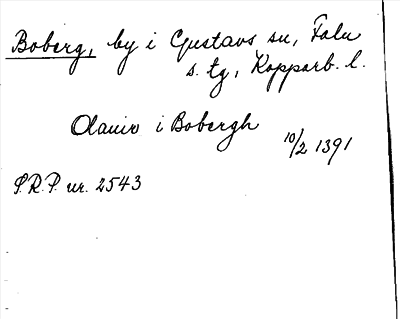 Boberg, by i Gustavs sn, Falu
s. tg, Kopparb. l.
Olauir i Bobergh
10/2 1391
S.R.P. nr. 2543